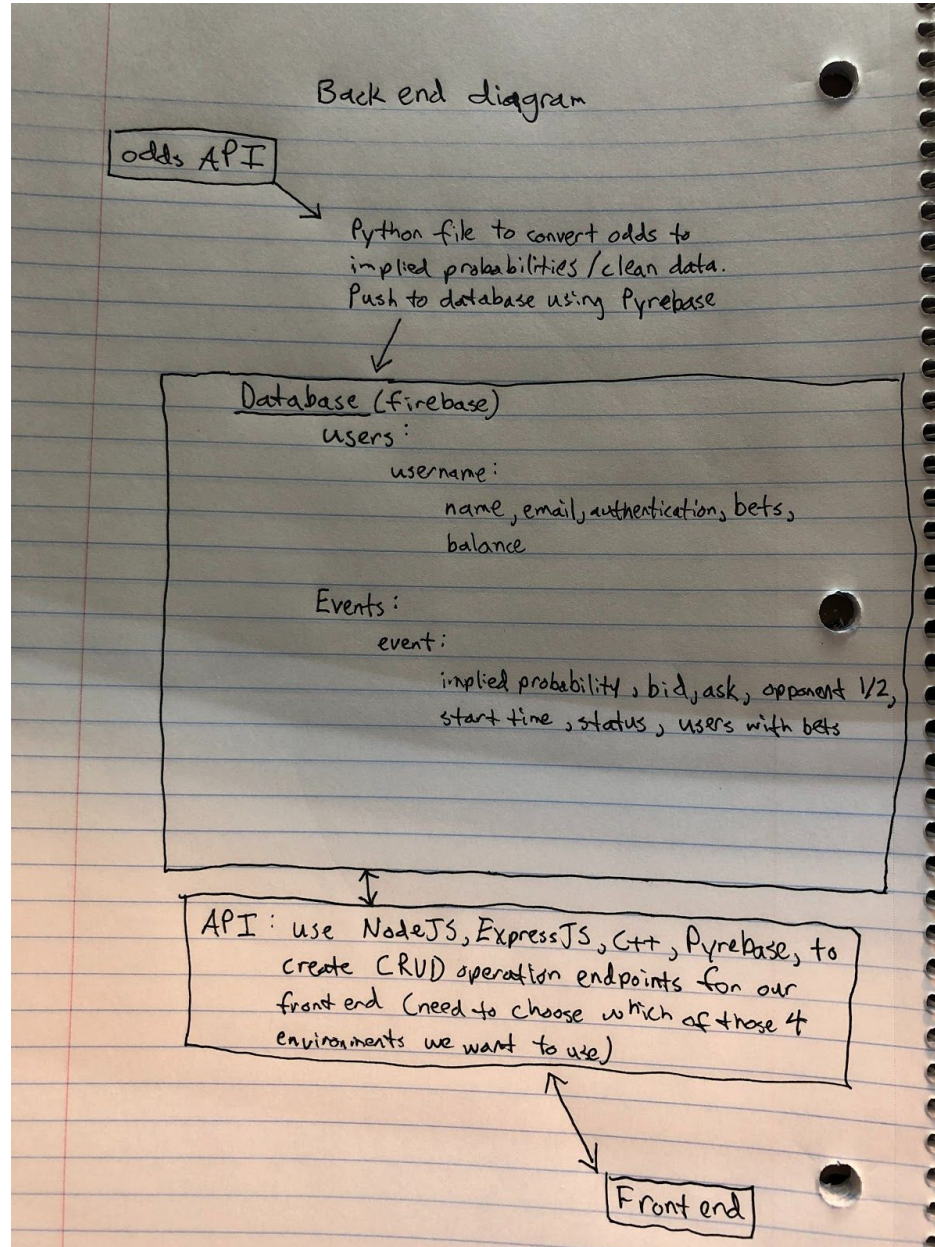 Back end diagram
odds API
Python file to convert odds to
implied probabilities/clean data.
Push to database using Pyrebase
Database (firebase)
users:
username:
name, email, authentication, bets,
balance
Events:
event:
implied probability, bid, ask, opponent 1/2,
start time, status, users with bets
API: use NodeJS, ExpressJS, C++, Pyrebase, to
create CRUD operation endpoints for our
front end (need to choose which of those 4
environments we want to use)
Front end